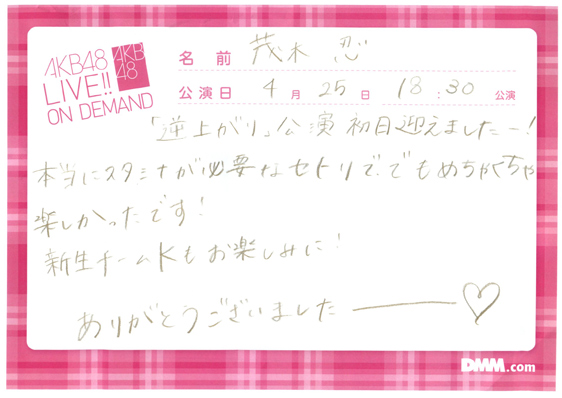 AKB48
LIVE!!
ON DEMAND
AKB
48
名前 茂木 忍
公演日 4月 25日 18:30 公演
「逆上がり」公演 初日迎えましたー!
本当にスタミナが必要なセトリで でもめちゃくちゃ
楽しかったです!
新生チームKもお楽しみに!
ありがとうございました ♡
DMM.com